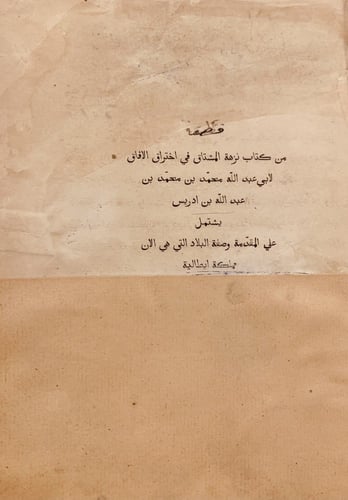 قطعة
من كتاب نزهة المشتاق في اختراق الافاق
لابي عبد الله محمّد بن محمّد بن
عبد الله بن ادريس
يشتمل
علي المقدّمة وصفة البلاد التي هي الان
مملكة ايطالية